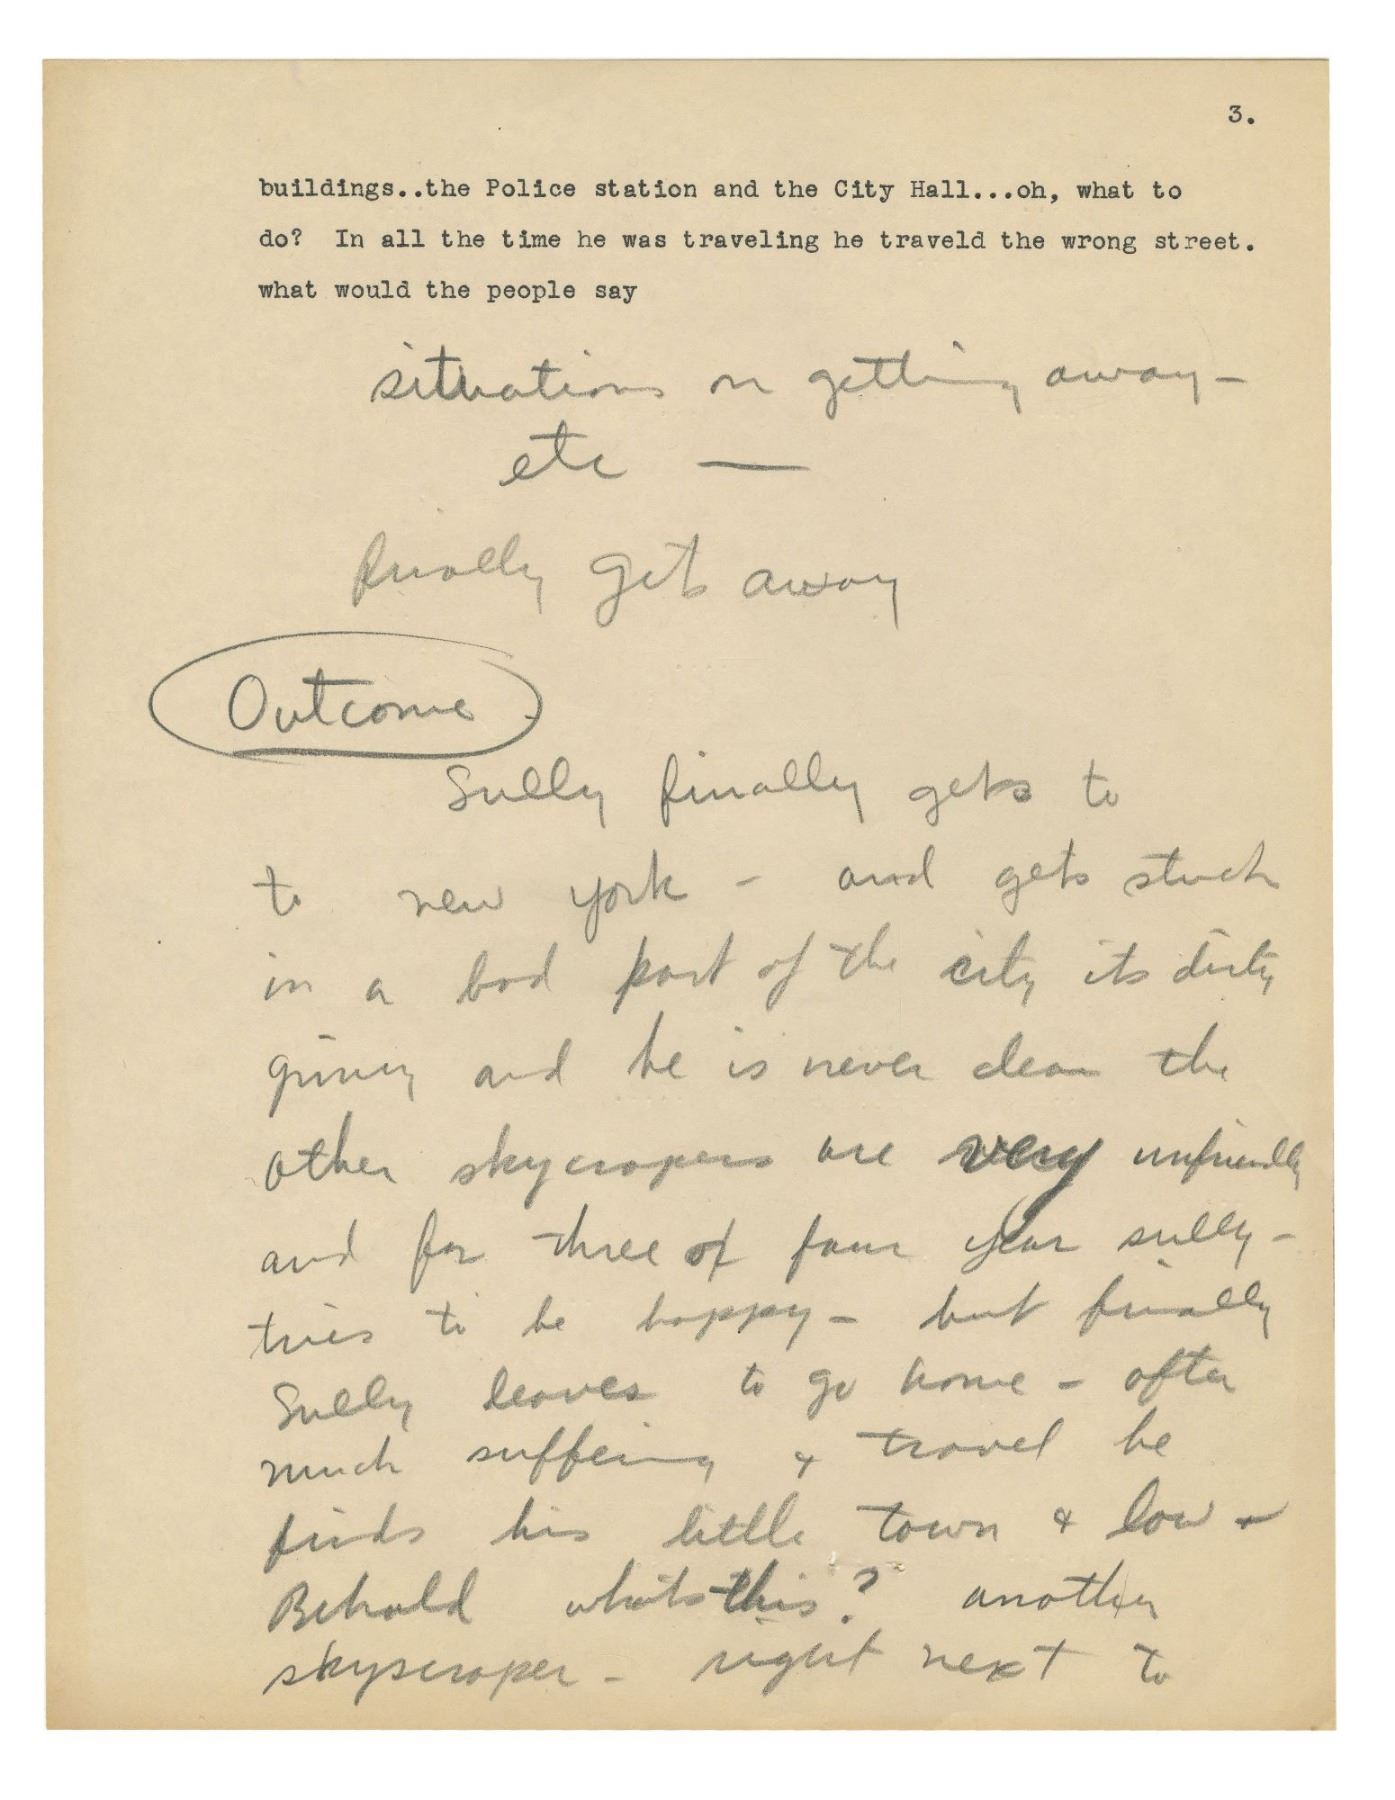 3.
buildings..the Police station and the City Hall...oh, what to
do? In all the time he was traveling he traveld the wrong street.
what would the people say
situations on getting away-
etc —
finally gets away
Outcome
Sully finally gets to
to new york - and gets stuck
in a bad part of the city its dirty
grimy and he is never clean the
other skycrapers are very unfriendly
and for three of four year sully-
tries to be happy - but finally
Sully leaves to go home - after
much suffeing & travel he
finds his little town & low &
Behold whats this? another
skyscraper - right next to